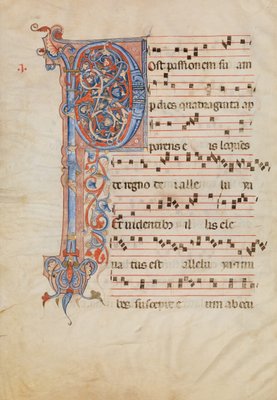 Post passionem su am
p dies quadraginta ap
parens e is loques
de regno de i alle lu ya
Et videntib; il lis ele
uatus est allelu ya
bes suscepit e um ab ocu